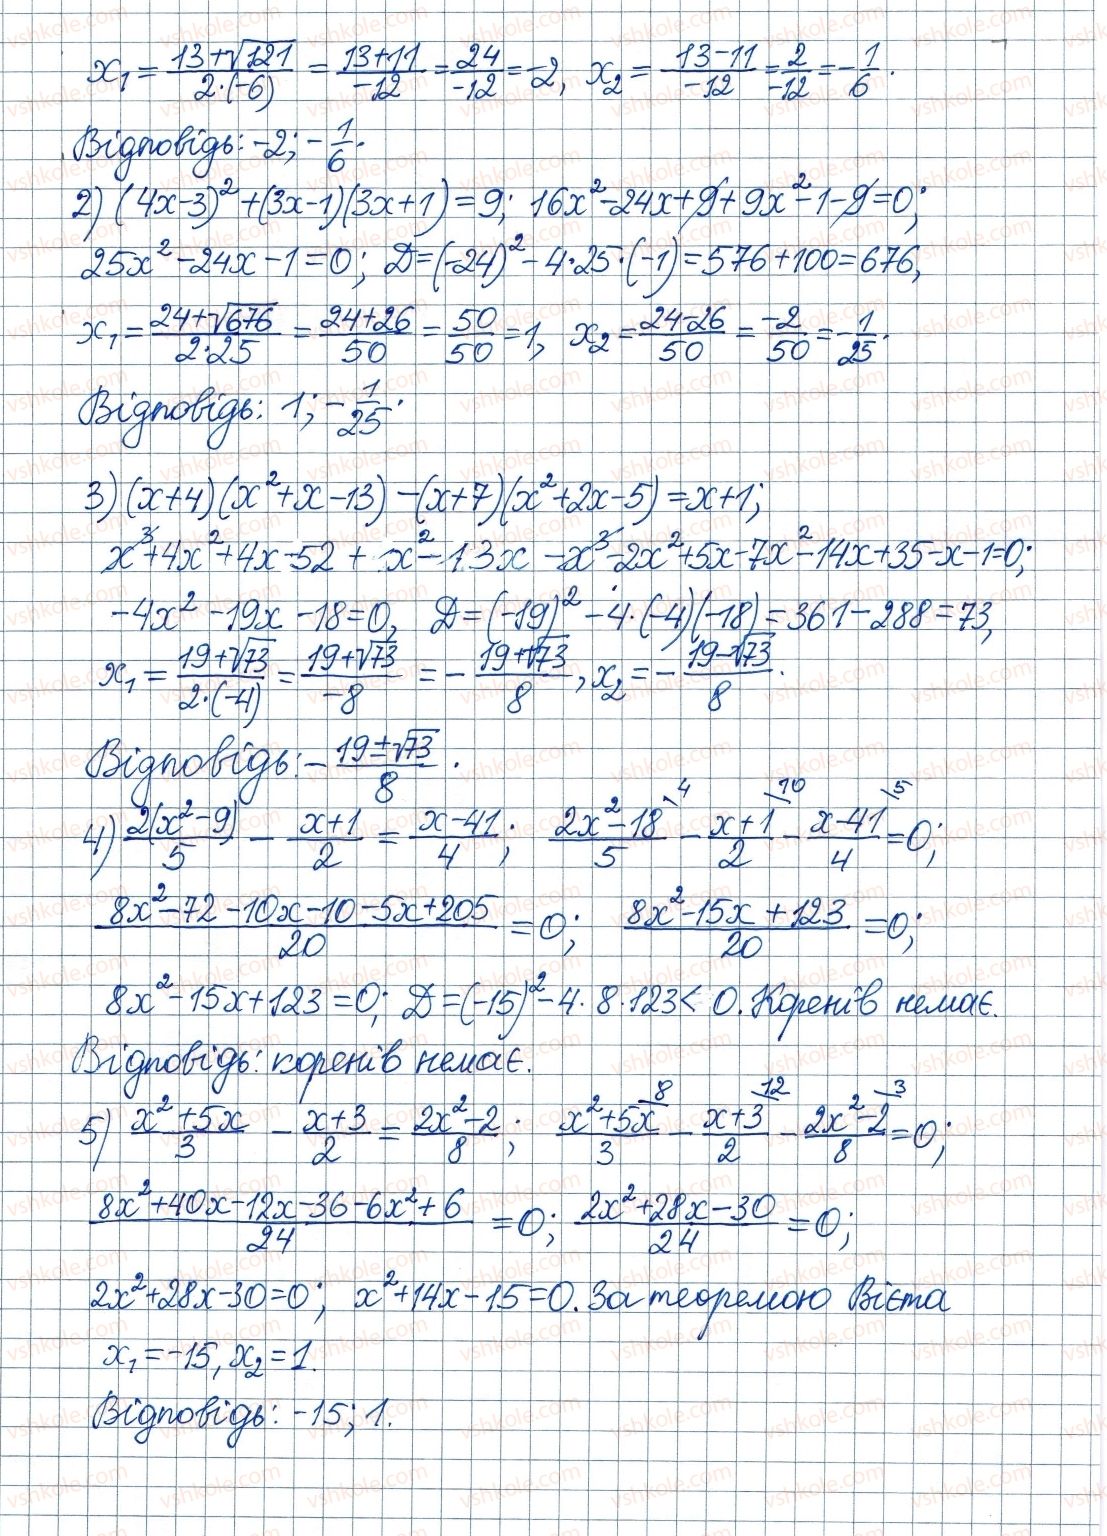 x₁ = (13+√121)/(2·(-6)) = (13+11)/(-12) = 24/(-12) = -2, x₂ = (13-11)/(-12) = 2/(-12) = -1/6.
Відповідь: -2; -1/6.
2) (4x-3)² + (3x-1)(3x+1) = 9; 16x² - 24x + 9 + 9x² - 1 - 9 = 0;
25x² - 24x - 1 = 0; Д = (-24)² - 4·25·(-1) = 576 + 100 = 676,
x₁ = (24+√676)/(2·25) = (24+26)/50 = 50/50 = 1, x₂ = (24-26)/50 = -2/50 = -1/25.
Відповідь: 1; -1/25.
3) (x+4)(x²+x-13) - (x+7)(x²+2x-5) = x+1;
x³+4x²+4x-52 + x²-13x - x³-2x²+5x-7x²-14x+35-x-1=0;
-4x² - 19x - 18 = 0, Д = (-19)² - 4·(-4)(-18) = 361 - 288 = 73,
x₁ = (19+√73)/(2·(-4)) = (19+√73)/(-8) = -(19+√73)/8, x₂ = -(19-√73)/8.
Відповідь: -(19±√73)/8.
4) 2(x²-9)/5 - (x+1)/2 = (x-41)/4; (2x²-18)/5 \4 - (x+1)/2 \10 - (x-41)/4 \5 = 0;
(8x²-72-10x-10-5x+205)/20 = 0; (8x²-15x+123)/20 = 0;
8x²-15x+123=0; Д = (-15)² - 4·8·123 < 0. Коренів немає.
Відповідь: коренів немає.
5) (x²+5x)/3 - (x+3)/2 = (2x²-2)/8; (x²+5x)/3 \8 - (x+3)/2 \12 - (2x²-2)/8 \3 = 0;
(8x²+40x-12x-36-6x²+6)/24 = 0; (2x²+28x-30)/24 = 0;
2x²+28x-30=0; x²+14x-15=0. За теоремою Вієта
x₁ = -15, x₂ = 1.
Відповідь: -15; 1.
vshkole.com